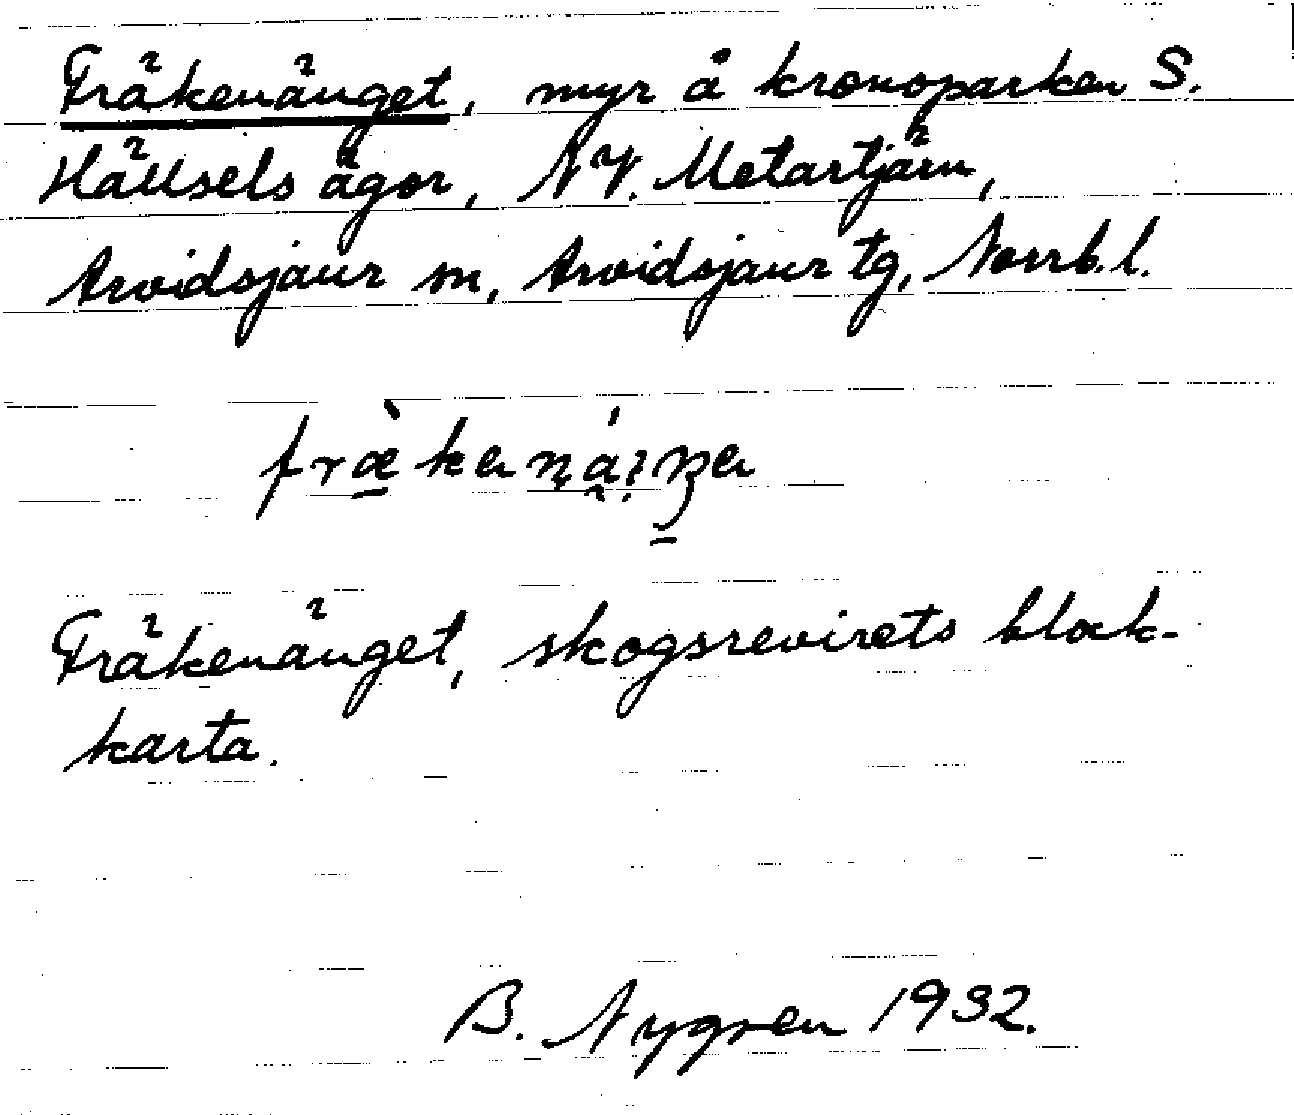 Fräkenänget, myr å kronoparken S.
Hällsels ägor, NV. Metartjärn,
Arvidsjaur sn, Arvidsjaur tg, Norrb.l.
Fräkenänget, skogsrevirets block-
karta.
B. Nygren 1932.